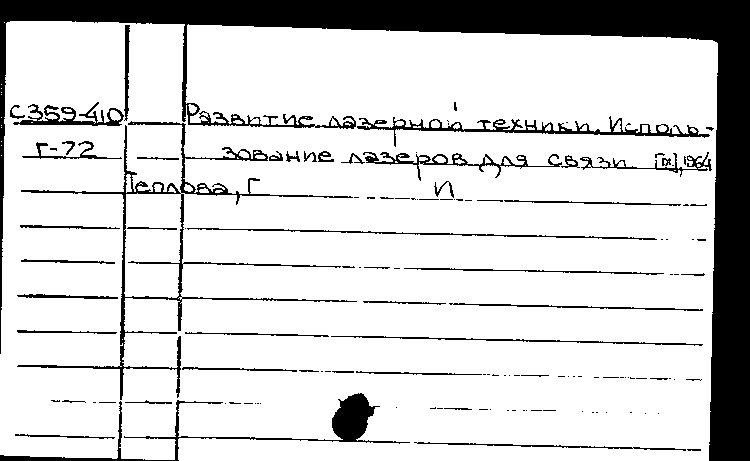 С359-410 Развитие лазерной техники. Исполь-
Г-72 зование лазеров для связи [IX], 1964
Теплова, Г П